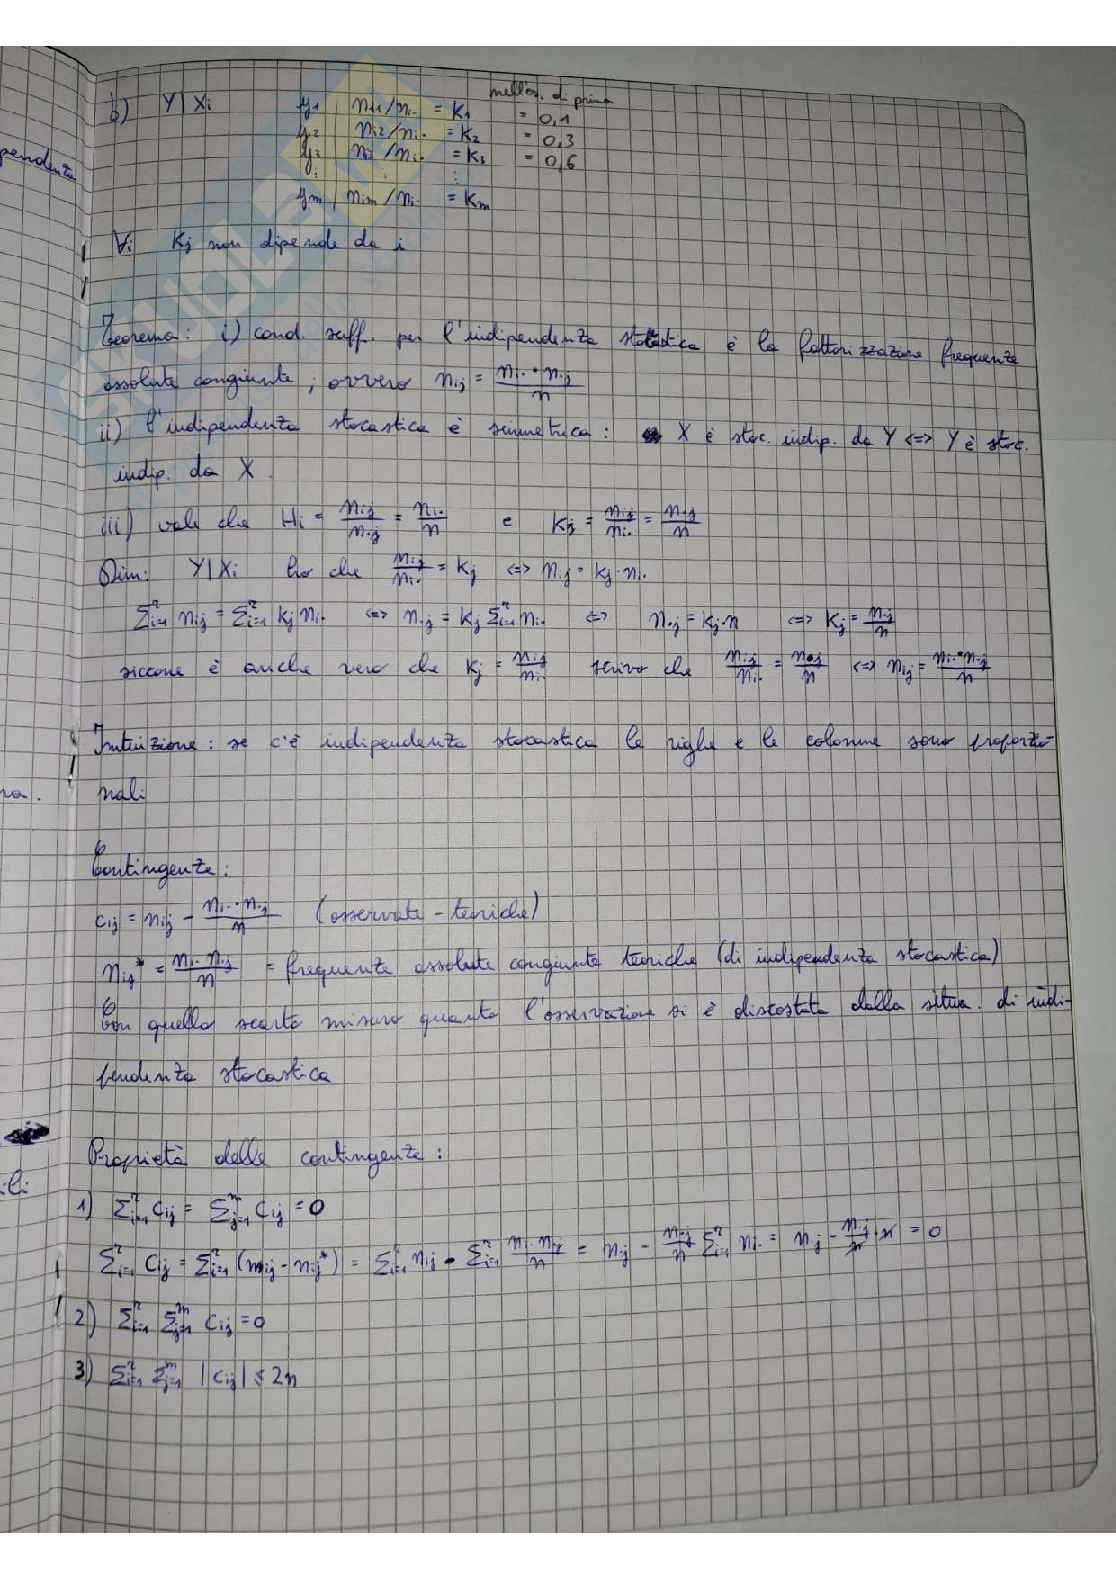 pendenza
b) Y | Xi y1 | ni1/ni. = K1 nell'es. di prima = 0,1
y2 | ni2/ni. = K2 = 0,3
y3 | ni3/ni. = K3 = 0,6
⋮ ⋮ ⋮
ym | nim/ni. = Km
∀i Kj non dipende da i
Teorema: i) cond. suff. per l'indipendenza stocastica è la fattorizzazione frequenze
assolute congiunte, ovvero nij = ni. · n.j / n
ii) l'indipendenza stocastica è simmetrica: X è stoc. indip. da Y <=> Y è stoc.
indip. da X.
iii) vale che Hi = nij/n.j = ni./n e Kj = nij/ni. = n.j/n
Dim: Y|Xi ho che nij/ni. = Kj <=> nij = kj·ni.
Σi=1^r nij = Σi=1^r kj ni. <=> n.j = kj Σi=1^r ni. <=> n.j = kj·n <=> Kj = n.j/n
siccome è anche vero che Kj = nij/ni. scrivo che nij/ni. = n.j/n <=> nij = ni.·n.j/n
Intuizione: se c'è indipendenza stocastica le righe e le colonne sono proporzio-
na. nali
Contingenze:
cij = nij - ni. · n.j / n (osservate - teoriche)
nij* = ni. n.j / n = frequenze assolute congiunte teoriche (di indipendenza stocastica)
Con quello scarto misuro quanto l'osservazione si è discostata dalla situa. di indi-
pendenza stocastica
Proprietà delle contingenze:
ili
1) Σi=1^r cij = Σj=1^m cij = 0
Σi=1^r cij = Σi=1^r (nij - nij*) = Σi=1^r nij - Σi=1^r ni. n.j / n = n.j - n.j/n Σi=1^r ni. = n.j - n.j/n · n = 0
2) Σi=1^r Σj=1^m cij = 0
3) Σi=1^r Σj=1^m |cij| ≤ 2n